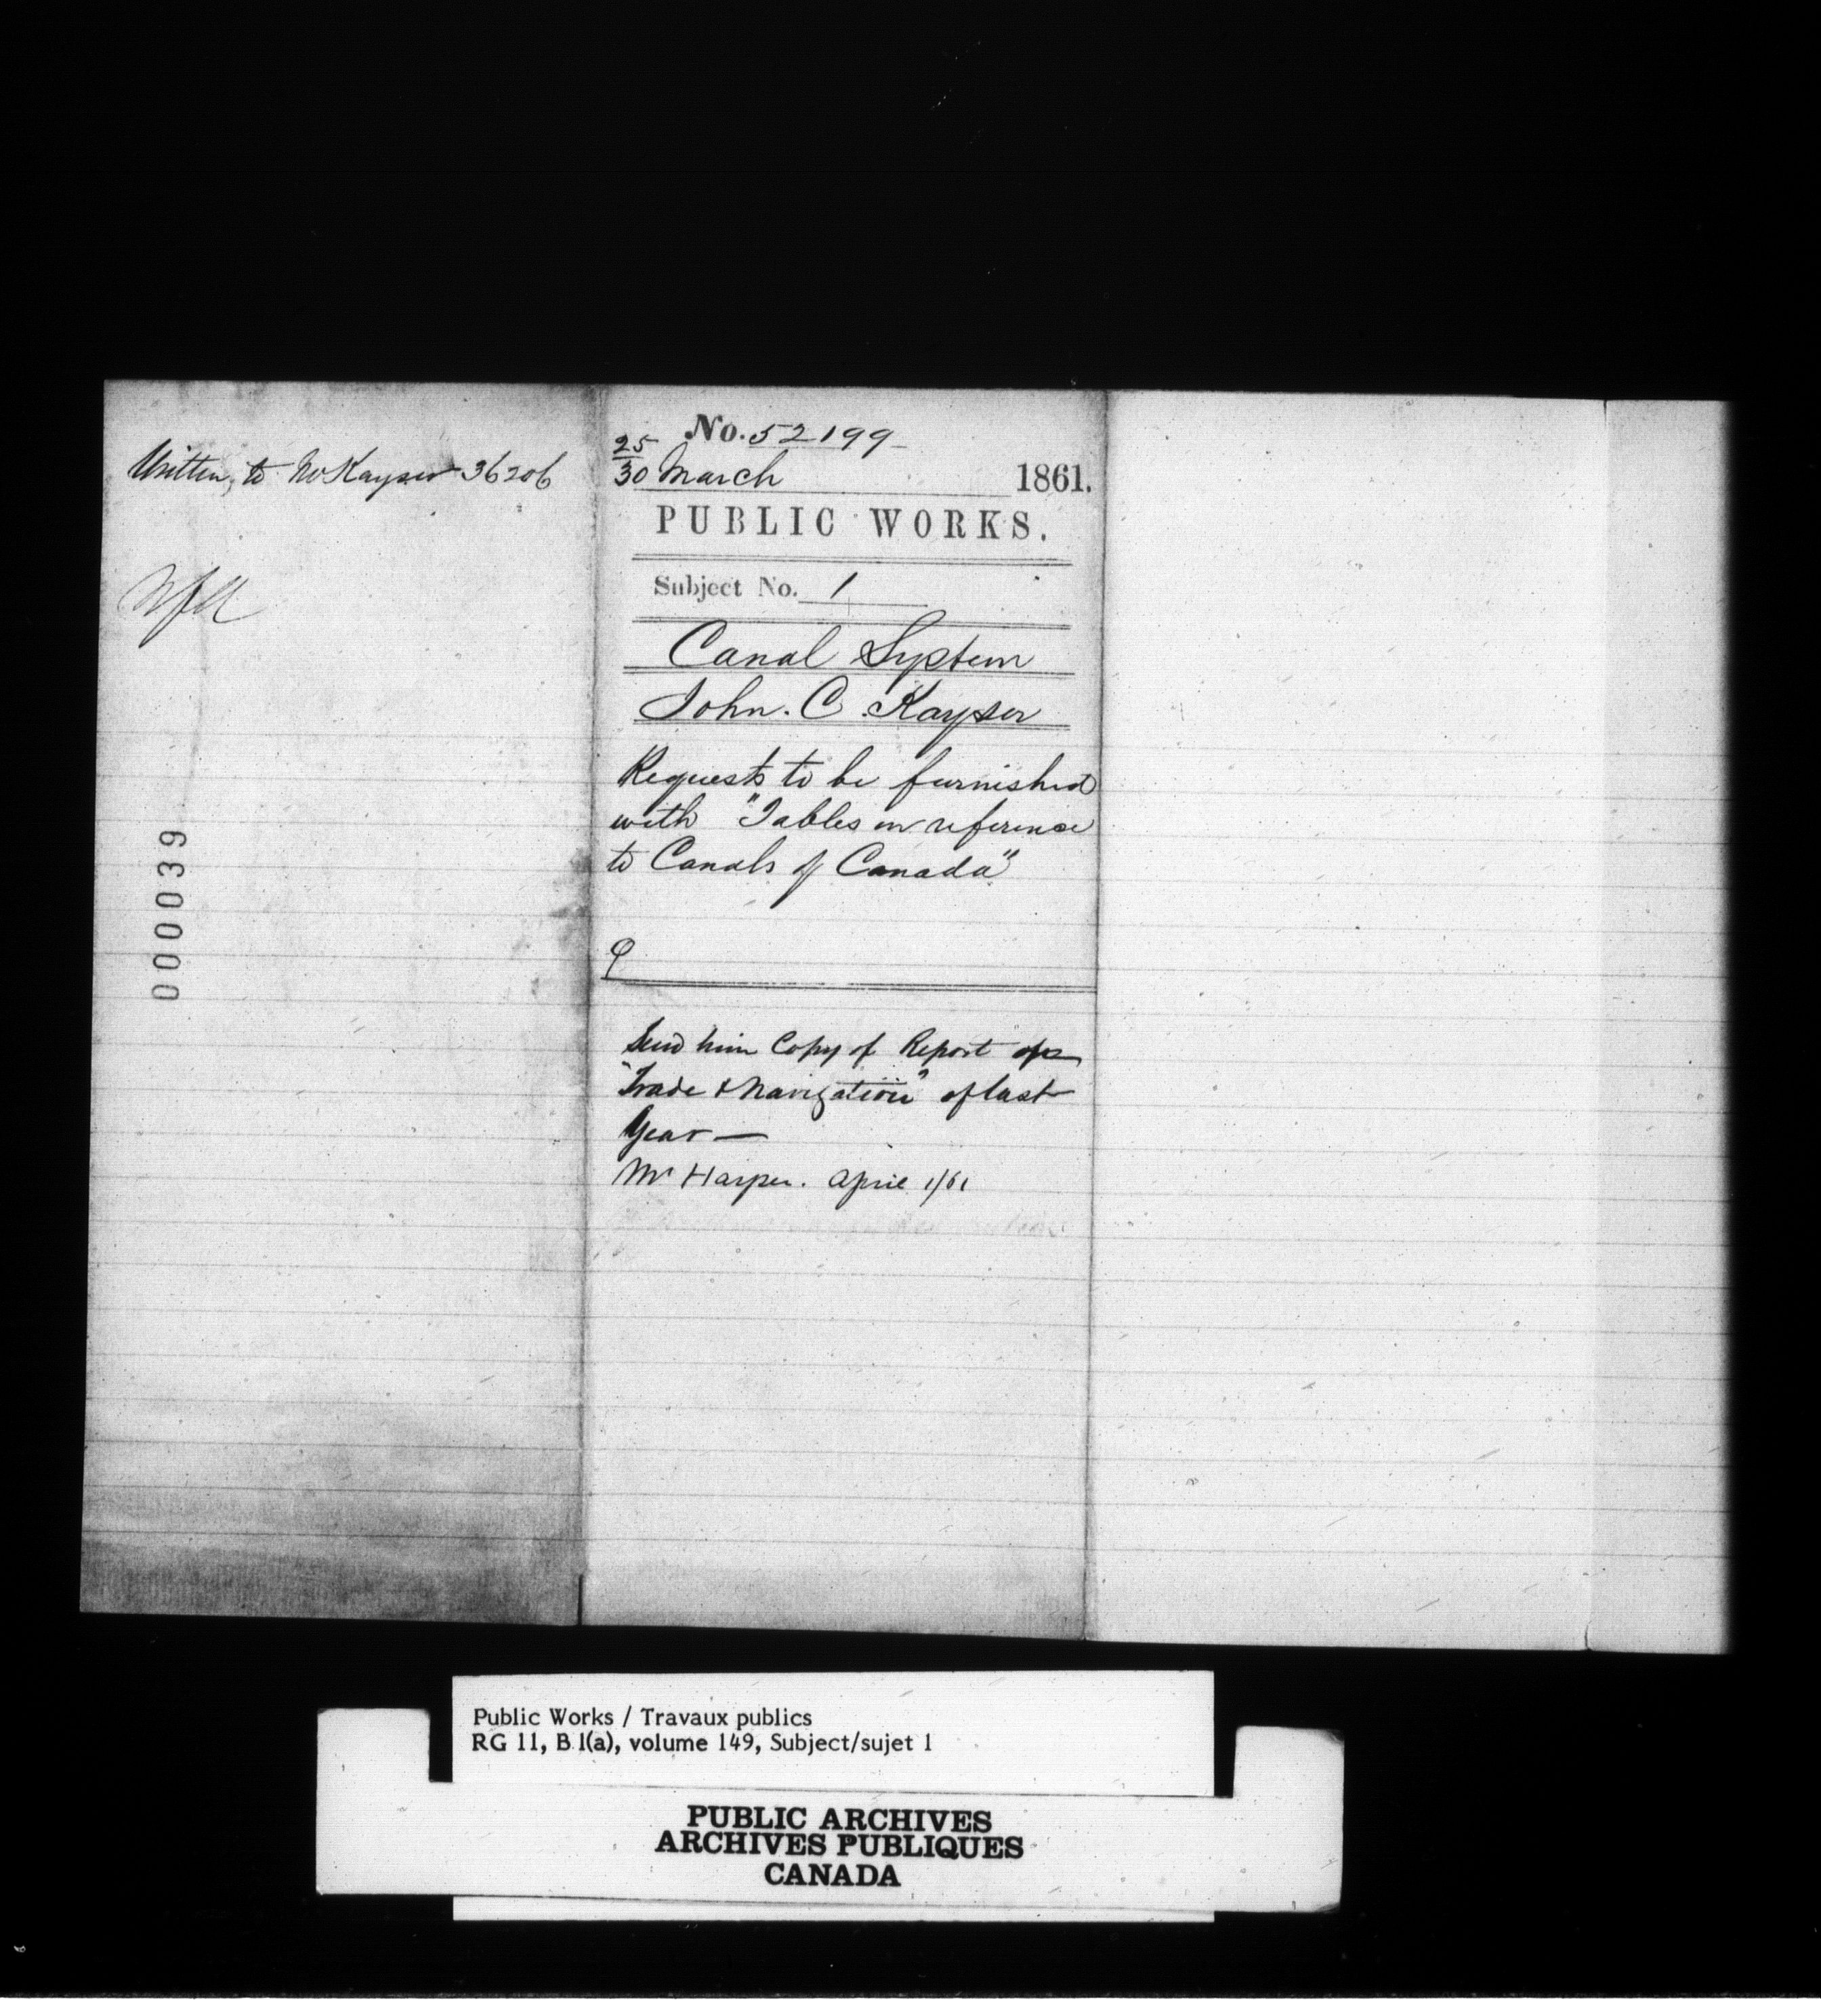 Written, to Mr Kayser 36206
000039
No. 52199
25
30 March 1861.
PUBLIC WORKS.
Subject No. 1
Canal System
John. C. Kayser
Requests to be furnished
with "Tables in reference
to Canals of Canada"
Send him Copy of Report of
"Trade & Navigation" of last
Year —
Mr Harper. April 1/61
Public Works / Travaux publics
RG 11, B 1(a), volume 149, Subject/sujet 1
PUBLIC ARCHIVES
ARCHIVES PUBLIQUES
CANADA